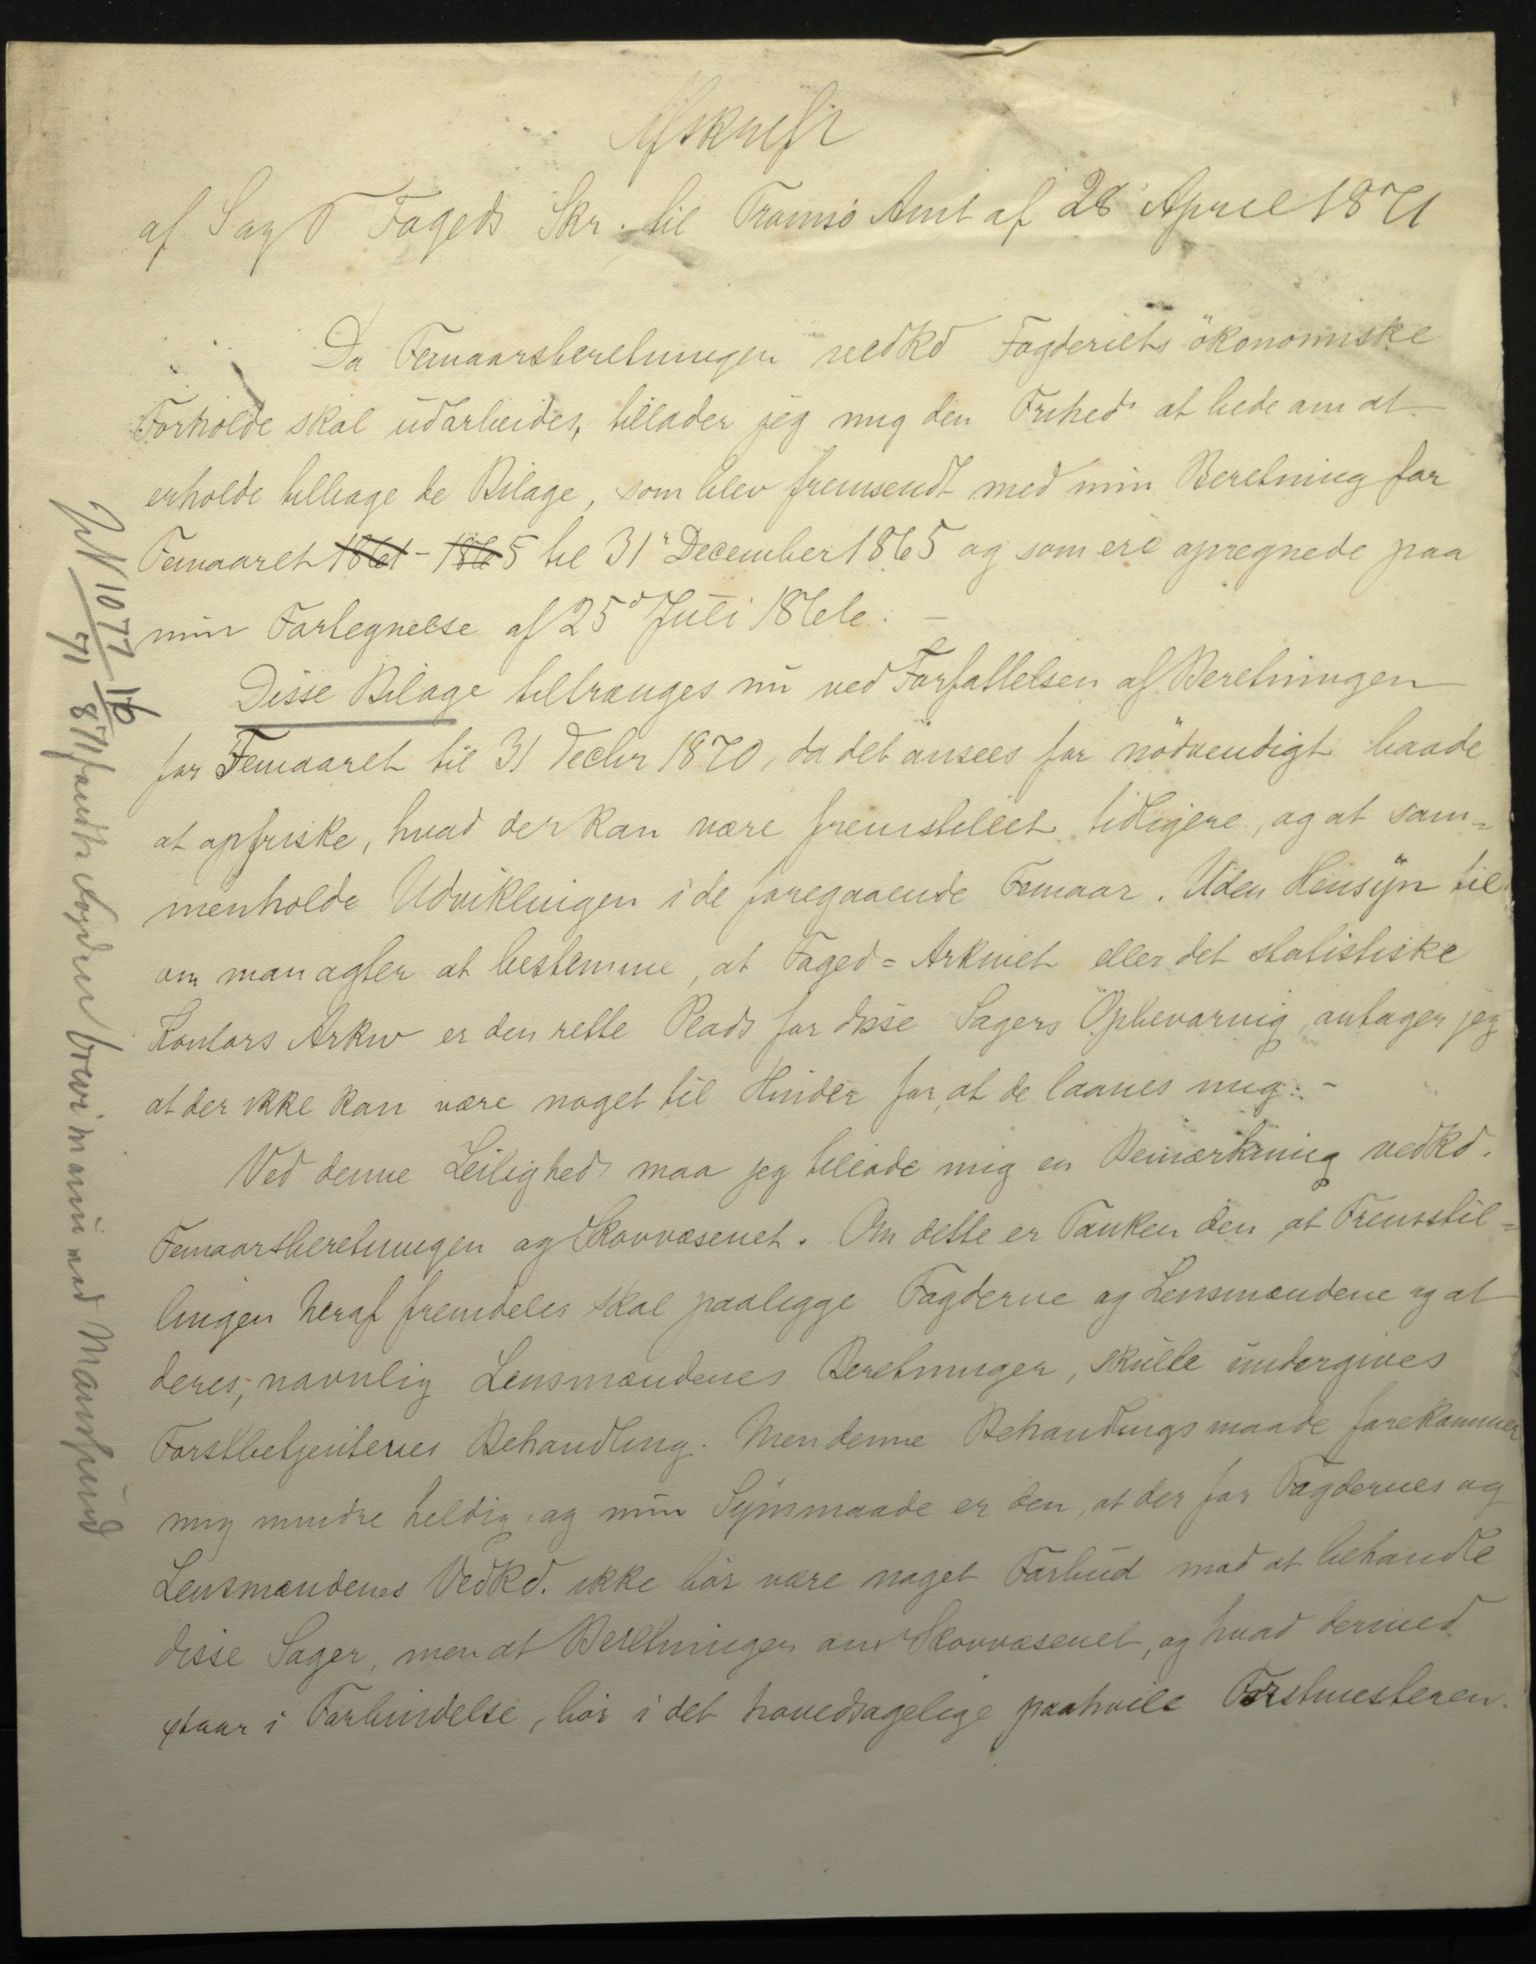 Afskrift
af S og T Fogeds Skr. til Tromsö Amt af 28 April 1871
Da Femaarsberetningen vedkd Fogderiets ökonomiske
Forholde skal udarbeides, tillader jeg mig den Frihed at bede om at
erholde tilbage de Bilage, som blev fremsendt med min Beretning for
Femaaret 1861 - 1865 til 31' December 1865 og som ere opregnede paa
min Fortegnelse af 25d Juli 1866. -
Disse Bilage tiltrænges nu ved Forfattelsen af Beretningen
for Femaaret til 31 Decbr 1870, da det ansees for nödvendigt baade
at opfriske, hvad der kan være fremstillet tidligere, og at sam=
menholde Udviklingen i de foregaaende Femaar. Uden Hensyn til
om man agter at bestemme, at Foged=Arkivet eller det statistiske
Kontors Arkiv er den rette Plads for disse Sagers Opbevaring, antager jeg
at der ikke kan være noget til Hinder for, at de laanes mig. -
Ved denne Leilighed maa jeg tillade mig en Bemærkning vedkd.
Femaarsberetningen og Skovvæsenet. Om dette er Tanken den, at Fremstil=
lingen heraf fremdeles skal paaligge Fogderne og Lensmændene og at
deres, navnlig Lensmændenes Beretninger, skulle undergives
Forstbetjenternes Behandling. Men denne Behandlingsmaade forekommer
mig mindre heldig, og min Synsmaade er den, at der for Fogdernes og
Lensmændenes Vedkd. ikke bör være noget Forbud mod at behandle
disse Sager, men at Beretningen om Skovvæsenet, og hvad dermed
staar i Forbindelse, bör i det hovedsagelige paahvile Forstmesteren.
JN 1077/71 16/8 71 brevi manu ved